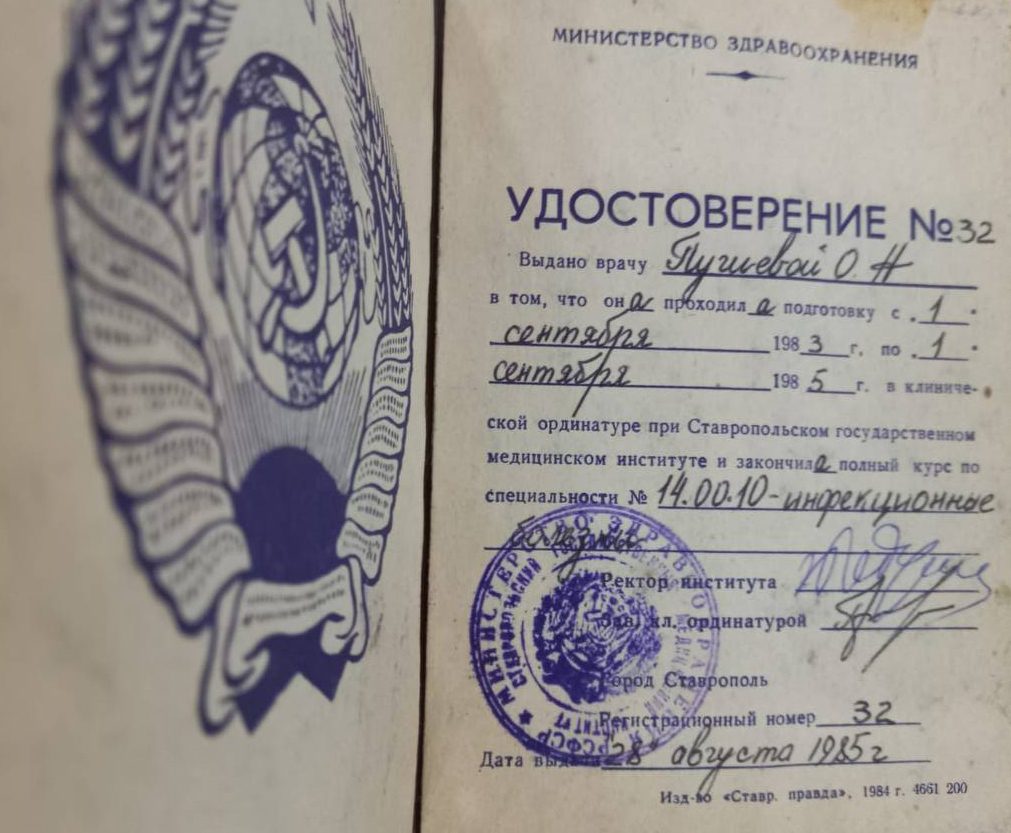 МИНИСТЕРСТВО ЗДРАВООХРАНЕНИЯ
УДОСТОВЕРЕНИЕ №32
Выдано врачу О. Н
в том, что она проходила подготовку с „1"
сентября 1983 г. по „1"
сентября 1985 г. в клиниче-
ской ординатуре при Ставропольском государственном
медицинском институте и закончила полный курс по
специальности № 14.00.10-инфекционные
болезни
Ректор института
Зав. кл. ординатурой
Город Ставрополь
Регистрационный номер 32
Дата выдачи 28 августа 1985г
Изд-во «Ставр. правда», 1984 г. 4661 200
МИНИСТЕРСТВО ЗДРАВООХРАНЕНИЯ РСФСР
СТАВРОПОЛЬСКИЙ ГОСУДАРСТВЕННЫЙ МЕДИЦИНСКИЙ ИНСТИТУТ